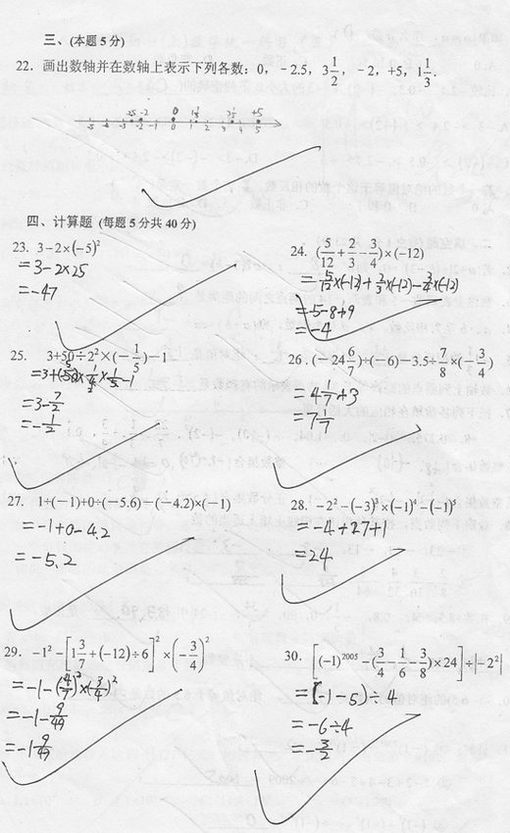 三、(本题5分)
22. 画出数轴并在数轴上表示下列各数：0，-2.5，3 1/2，-2，+5，1 1/3．
四、计算题 (每题5分共40分)
23. 3-2×(-5)²
=3-2×25
=-47
24. (5/12+2/3-3/4)×(-12)
=5/12×(-12)+2/3×(-12)-3/4×(-12)
=-5-8+9
=-4
25. 3+50÷2²×(-1/5)-1
=3-7/2
=-1/2
26. (-24 6/7)÷(-6)-3.5÷7/8×(-3/4)
=4 1/7+3
=7 1/7
27. 1÷(-1)+0÷(-5.6)-(-4.2)×(-1)
=-1+0-4.2
=-5.2
28. -2²-(-3)³×(-1)⁴-(-1)⁵
=-4+27+1
=24
29. -1²-[1 3/7+(-12)÷6]²×(-3/4)²
=-1-(4/7)²×(3/4)²
=-1-9/49
=-1 9/49
30. [(-1)²⁰⁰⁵-(3/4-1/6-3/8)×24]÷|-2²|
=(-1-5)÷4
=-6÷4
=-3/2